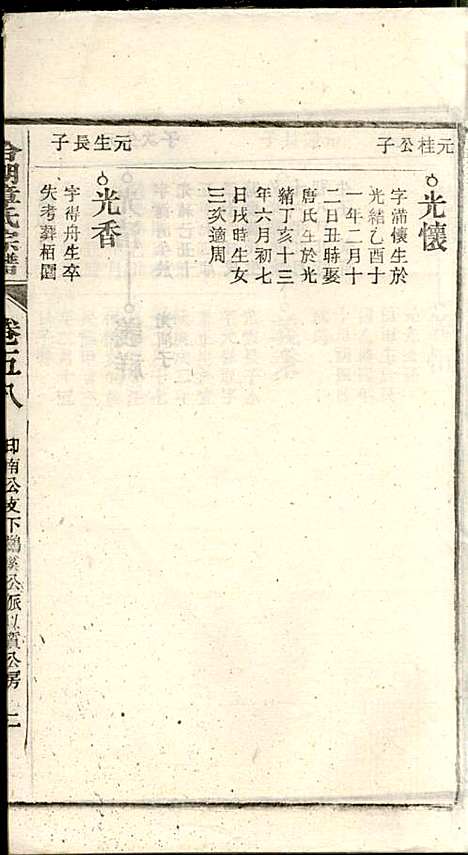 元桂公子
光懷
字滿懷生於
光緒乙酉十
一年二月十
二日丑時娶
唐氏生於光
緒丁亥十三
年六月初七
日戌時生女
三次適周
元生長子
光香
字得舟生卒
失考葬栢園
童氏宗譜
卷五八
印南公支下鵝溪公派以質公房
二